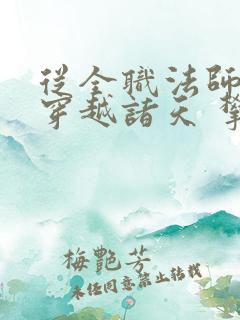 從全職法師
穿越諸天
梅艷芳
未经同意禁止转载